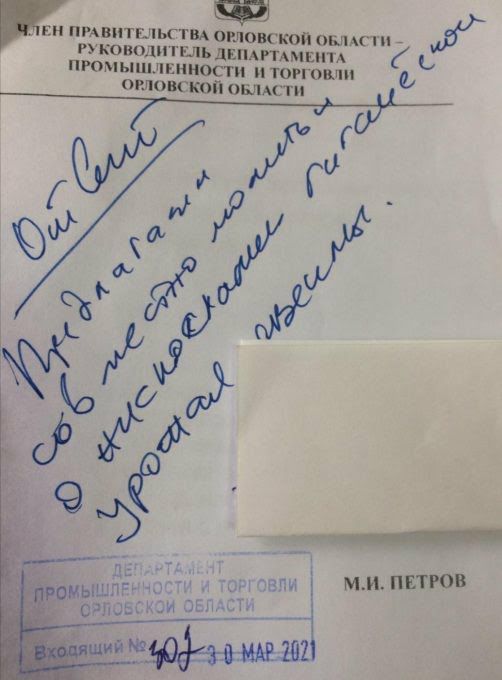 ЧЛЕН ПРАВИТЕЛЬСТВА ОРЛОВСКОЙ ОБЛАСТИ –
РУКОВОДИТЕЛЬ ДЕПАРТАМЕНТА
ПРОМЫШЛЕННОСТИ И ТОРГОВЛИ
ОРЛОВСКОЙ ОБЛАСТИ
Предлагаем
совместно молиться
о ниспослании
урожая
ДЕПАРТАМЕНТ
ПРОМЫШЛЕННОСТИ И ТОРГОВЛИ
ОРЛОВСКОЙ ОБЛАСТИ
Входящий № 307 30 МАР 2021
М.И. ПЕТРОВ